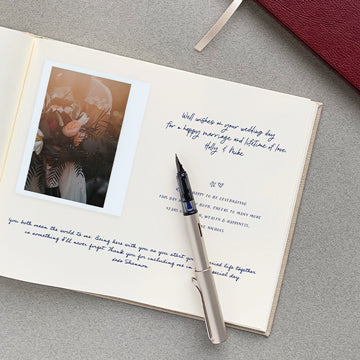 Well wishes on your wedding day
For a happy marriage and lifetime of love.
Holly & Mike
HAPPY TO BE CELEBRATING
YOU BOTH. CHEERS TO MANY MORE
HEALTH & HAPPINESS,
You both mean the world to me. Being here with you as you start your married life together
is something I'll never forget. Thank you for including me in your special day.
Shannon